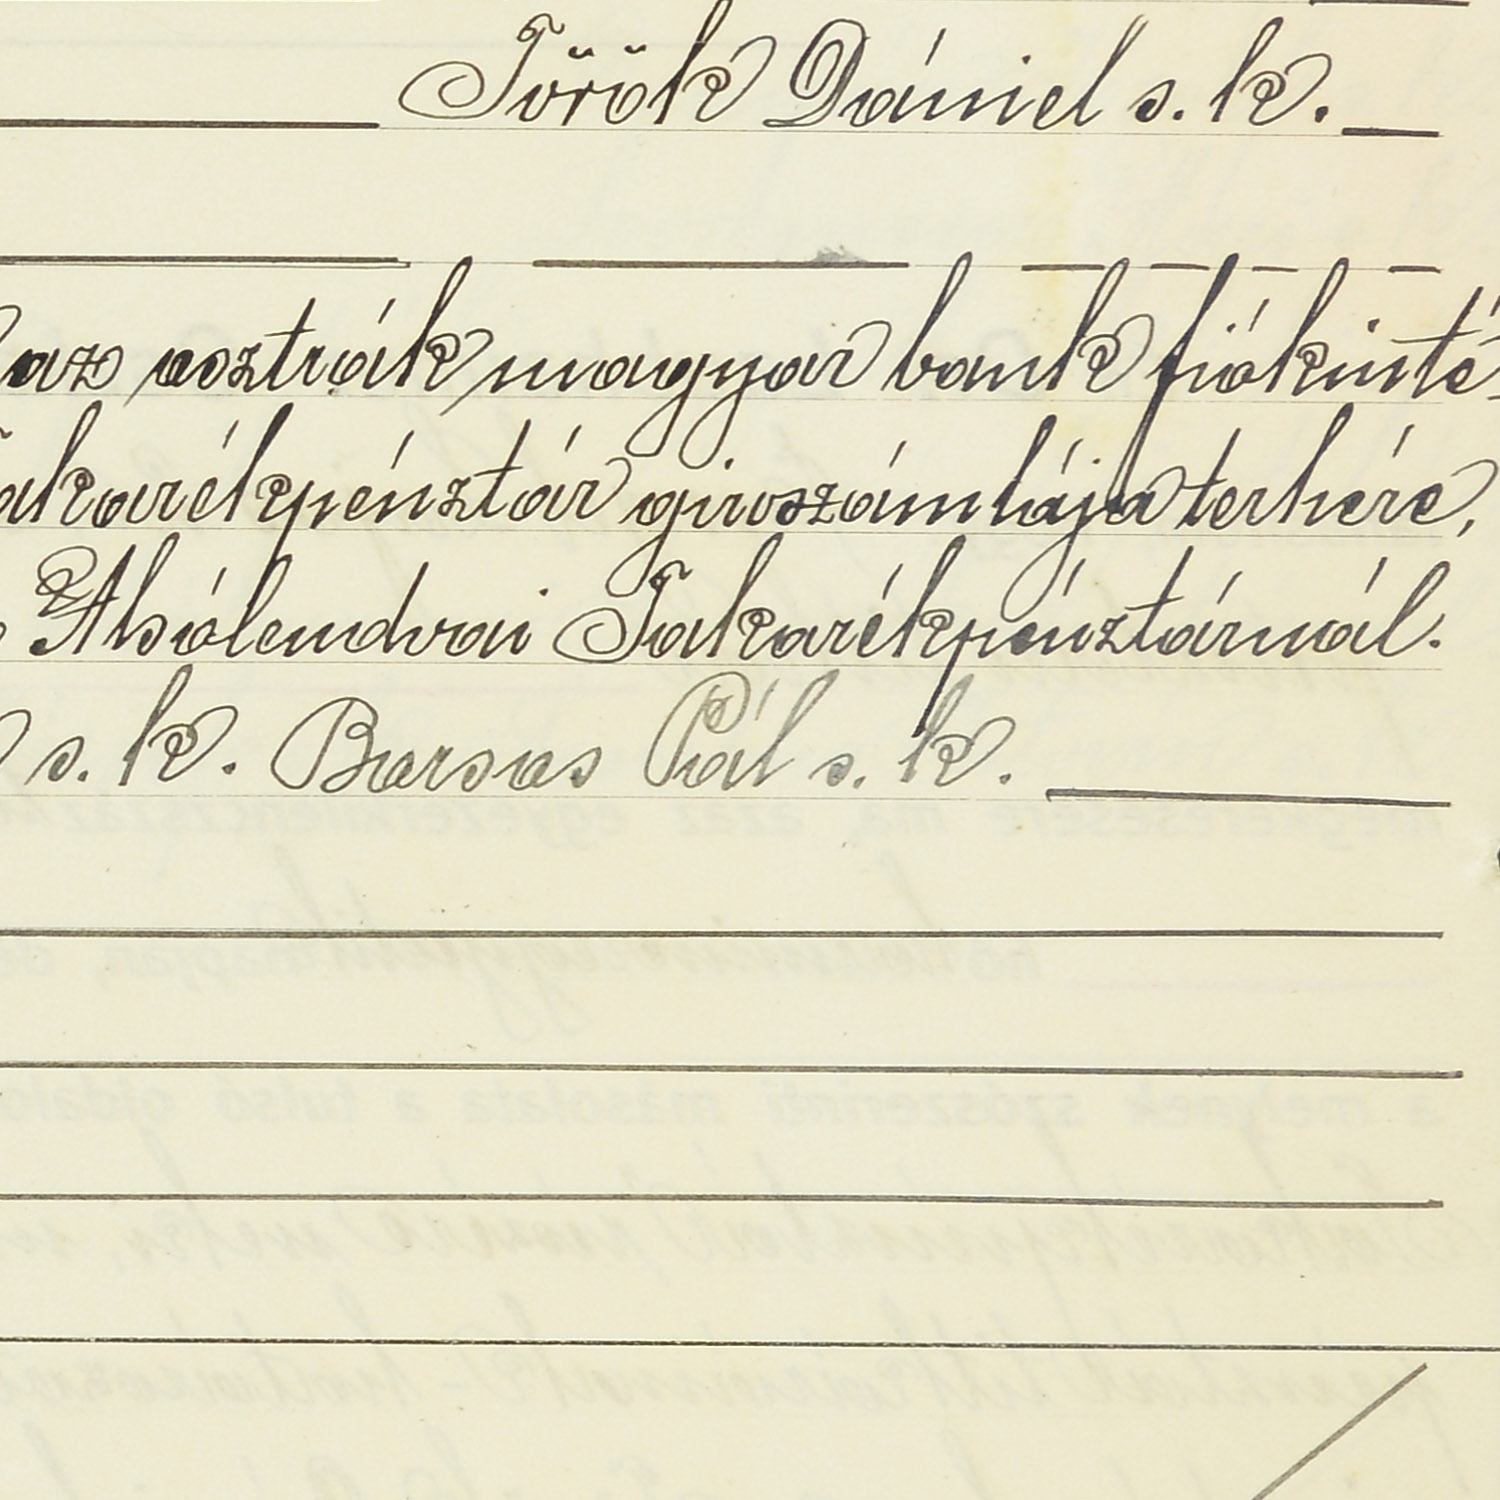 Török Dániel s. k.
az osztrák magyar bank fiókinté-
akarékpénztár giroszámlája terhére,
Alsólendvai Takarékpénztárnál.
s. k. Barsas Pál s. k.